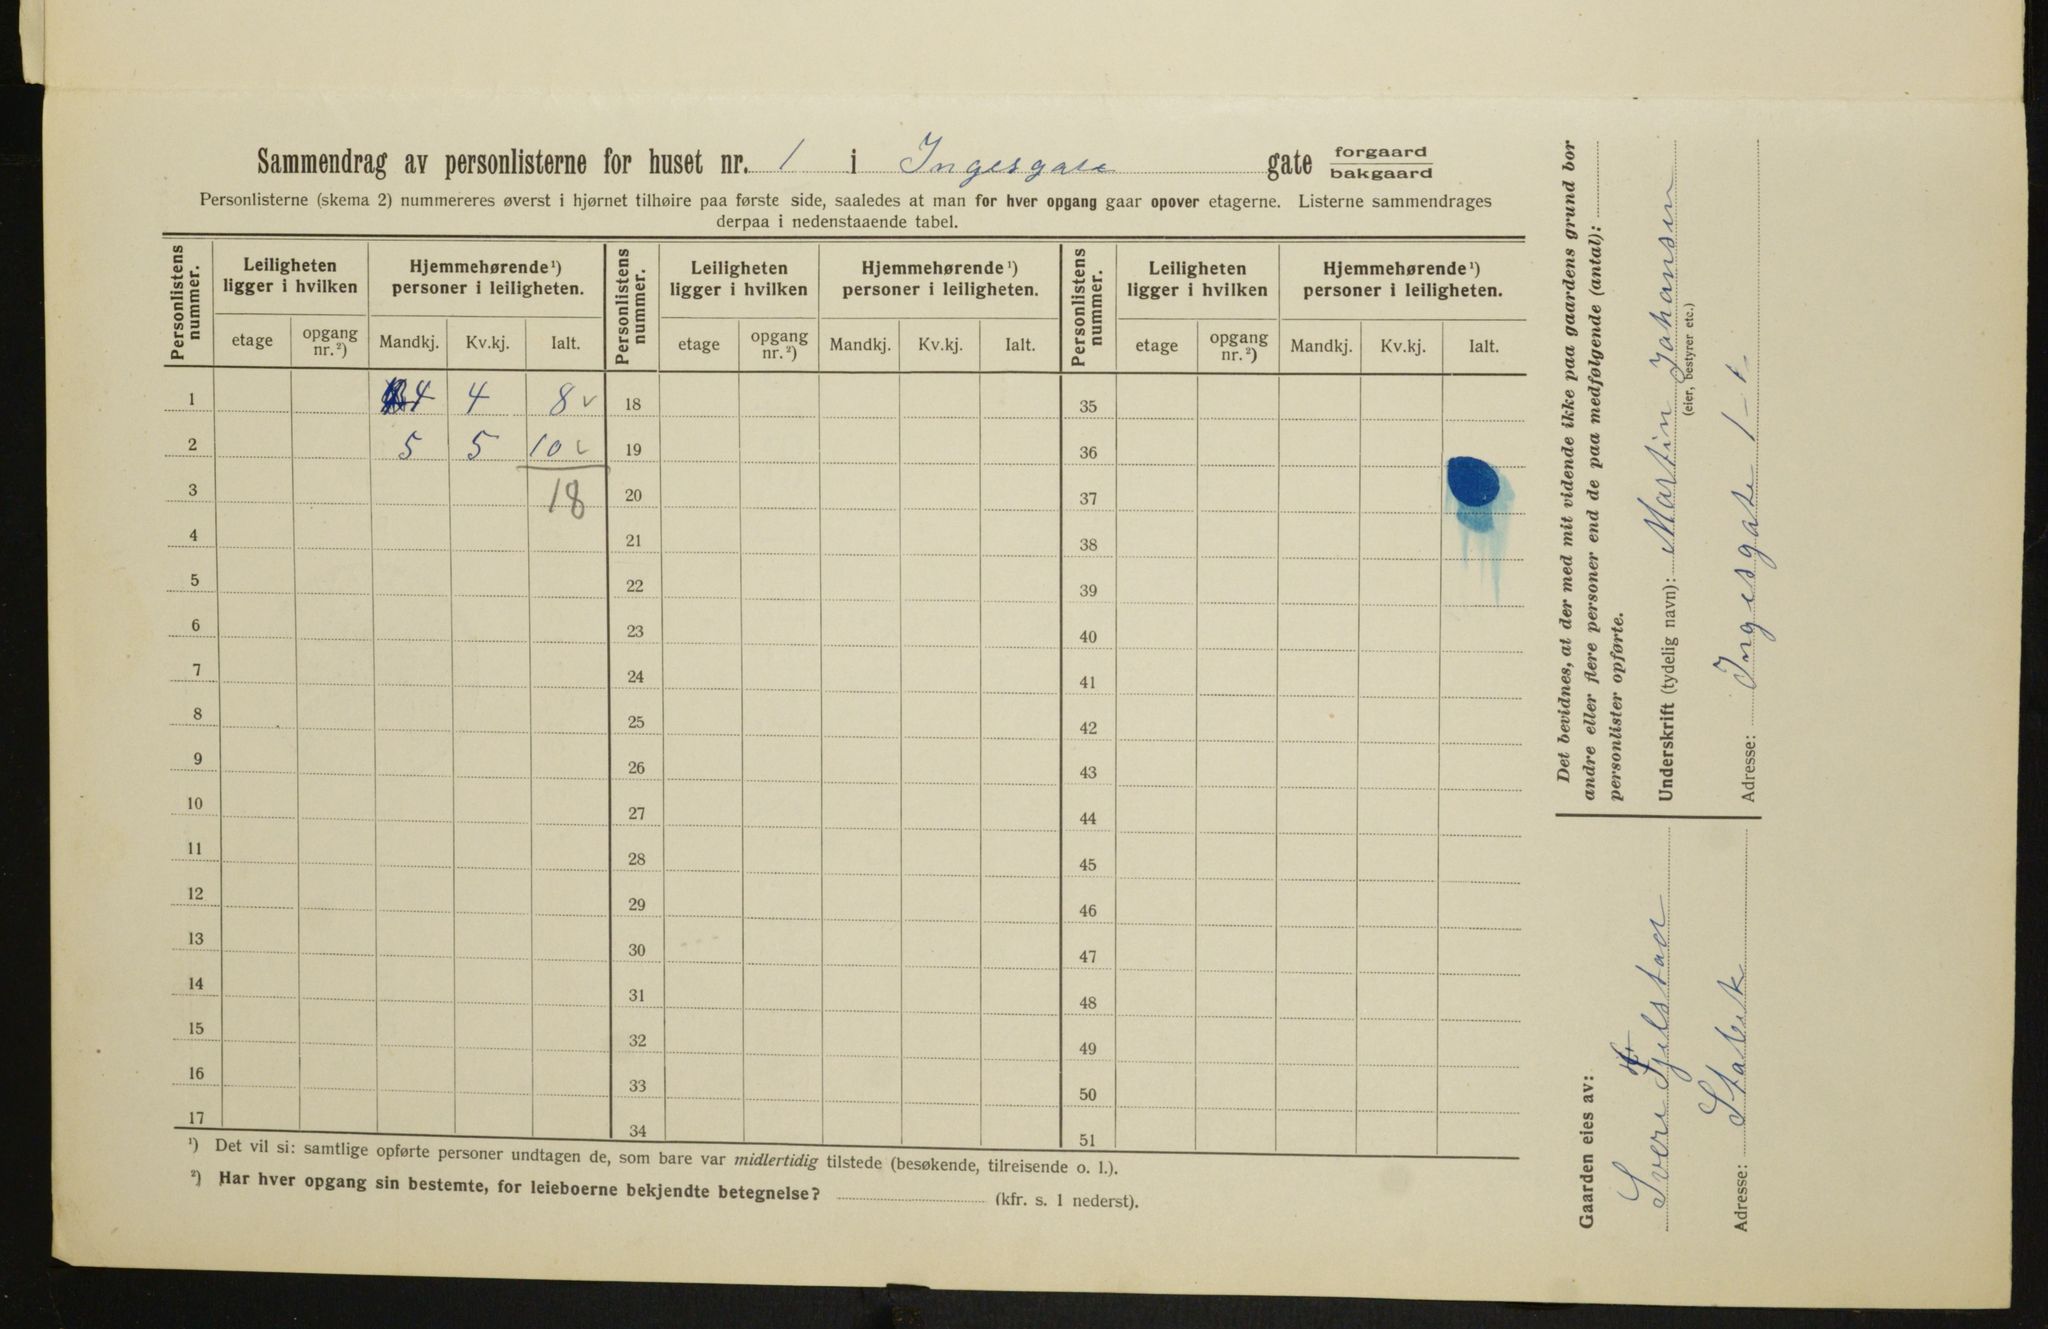 Sammendrag av personlisterne for huset nr. 1 i Ingesgate gate forgaard
bakgaard
Personlisterne (skema 2) nummereres øverst i hjørnet tilhøire paa første side, saaledes at man for hver opgang gaar opover etagerne. Listerne sammendrages
derpaa i nedenstaaende tabel.
Personlistens nummer. Leiligheten ligger i hvilken Hjemmehørende ¹) personer i leiligheten. Personlistens nummer. Leiligheten ligger i hvilken Hjemmehørende ¹) personer i leiligheten. Personlistens nummer. Leiligheten ligger i hvilken Hjemmehørende ¹) personer i leiligheten.
etage opgang nr. ²) Mandkj. Kv.kj. Ialt. etage opgang nr. ²) Mandkj. Kv.kj. Ialt. etage opgang nr. ²) Mandkj. Kv.kj. Ialt.
1 4 4 8 ✓ 18 35
2 5 5 10 ✓ 19 36
3 18 20 37
4 21 38
5 22 39
6 23 40
7 24 41
8 25 42
9 26 43
10 27 44
11 28 45
12 29 46
13 30 47
14 31 48
15 32 49
16 33 50
17 34 51
¹) Det vil si: samtlige opførte personer undtagen de, som bare var midlertidig tilstede (besøkende, tilreisende o. l.).
²) Har hver opgang sin bestemte, for leieboerne bekjendte betegnelse? (kfr. s. 1 nederst).
Det bevidnes, at der med mit vidende ikke paa gaardens grund bor
andre eller flere personer end de paa medfølgende (antal):
personlister opførte.
Underskrift (tydelig navn): Martin Johansen
(eier, bestyrer etc.)
Adresse: Ingesgate 1 - 1 -
Gaarden eies av:
Sverre Fjelstad
Adresse: Stabek